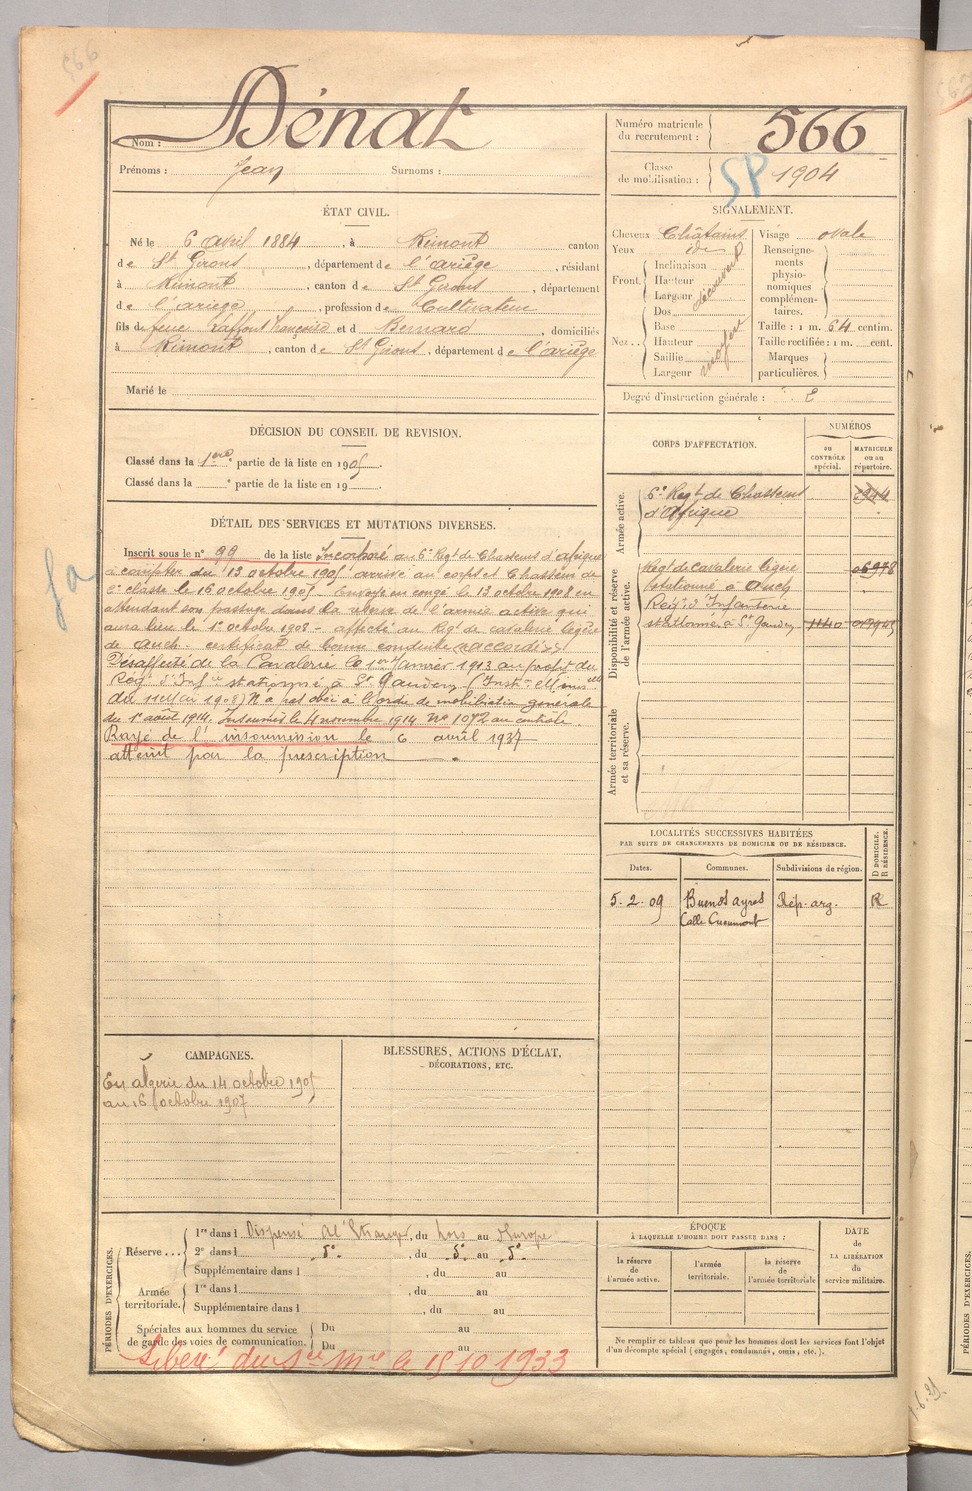 566
Nom : Dénat
Prénoms : Jean Surnoms :
Numéro matricule du recrutement : 566
Classe de mobilisation : 1904
SP
ÉTAT CIVIL.
Né le 6 avril 1884, à Rimont canton
de St Girons, département de l'ariège, résidant
à Rimont, canton de St Girons, département
de l'ariege, profession de Cultivateur
fils de feue Laffont françoise et d Bernard, domiciliés
à Rimont, canton de St Girons, département de l'ariège
Marié le
SIGNALEMENT.
Cheveux Châtains
Yeux ide
Front
Inclinaison
Hauteur
Largeur
découvert
Nez
Dos
Base
Hauteur
Saillie
Largeur
moyen
Visage ovale
Renseignements physionomiques complémentaires.
Taille : 1 m. 64 centim.
Taille rectifiée : 1 m. cent.
Marques particulières.
Degré d'instruction générale : 2
DÉCISION DU CONSEIL DE REVISION.
Classé dans la 1ere partie de la liste en 1905.
Classé dans la e partie de la liste en 19
DÉTAIL DES SERVICES ET MUTATIONS DIVERSES.
Inscrit sous le n° 99 de la liste Incorporé au 6e Regt de Chasseurs d'afrique
à compter du 13 octobre 1905 arrivé au corps et Chasseur de
2e classe le 16 octobre 1905 - Envoyé en congé le 13 octobre 1908 en
attendant son passage dans la réserve de l'armée active qui
aura lieu le 1er octobre 1908 - affecté au Regt de cavalerie légère
de Auch. certificat de bonne conduite "accordé"
Désaffecté de la Cavalerie le 1er Janvier 1913 au profit du
Regt d'Infie stationné à St Gaudens (Instr. Minislle
du 11 Mai 1908) N'a pas obéi à l'ordre de mobilisation generale
du 1er août 1914. Insoumis le 4 novembre 1914 No 1072 au contrôle.
Rayé de l'insoumission le 6 avril 1937
atteint par la prescription
CORPS D'AFFECTATION.
NUMÉROS
au CONTRÔLE spécial.
MATRICULE ou au répertoire.
Armée active.
6e Regt de Chasseurs
d'Afrique
Disponibilité et réserve de l'armée active.
Regt de cavalerie légère 06978
stationné à Auch
Regt d'Infanterie
stationné à St Gaudens 1140
Armée territoriale et sa réserve.
LOCALITÉS SUCCESSIVES HABITÉES
PAR SUITE DE CHANGEMENTS DE DOMICILE OU DE RÉSIDENCE.
Dates. Communes. Subdivisions de région. D DOMICILE. R RÉSIDENCE.
5.2.09 Buenos ayres Rép. arg. R
Calle
CAMPAGNES.
En algérie du 14 octobre 1905
au 16 octobre 1907
BLESSURES, ACTIONS D'ÉCLAT,
DÉCORATIONS, ETC.
PÉRIODES D'EXERCICES.
Réserve
1re dans l Dispensé à l'Etranger, du hors au d'Europe
2e dans l do, du do au do
Supplémentaire dans l , du au
Armée territoriale.
1re dans l , du au
Supplémentaire dans l , du au
Spéciales aux hommes du service
de garde des voies de communication.
Du au
Du au
Libéré du Sce Mre le 15 10 1933
ÉPOQUE
À LAQUELLE L'HOMME DOIT PASSER DANS :
la réserve de l'armée active.
l'armée territoriale.
la réserve de l'armée territoriale
DATE de LA LIBÉRATION du service militaire.
Ne remplir ce tableau que pour les hommes dont les services font l'objet
d'un décompte spécial (engagés, condamnés, omis, etc.).
PÉRIODES D'EXERCICES.